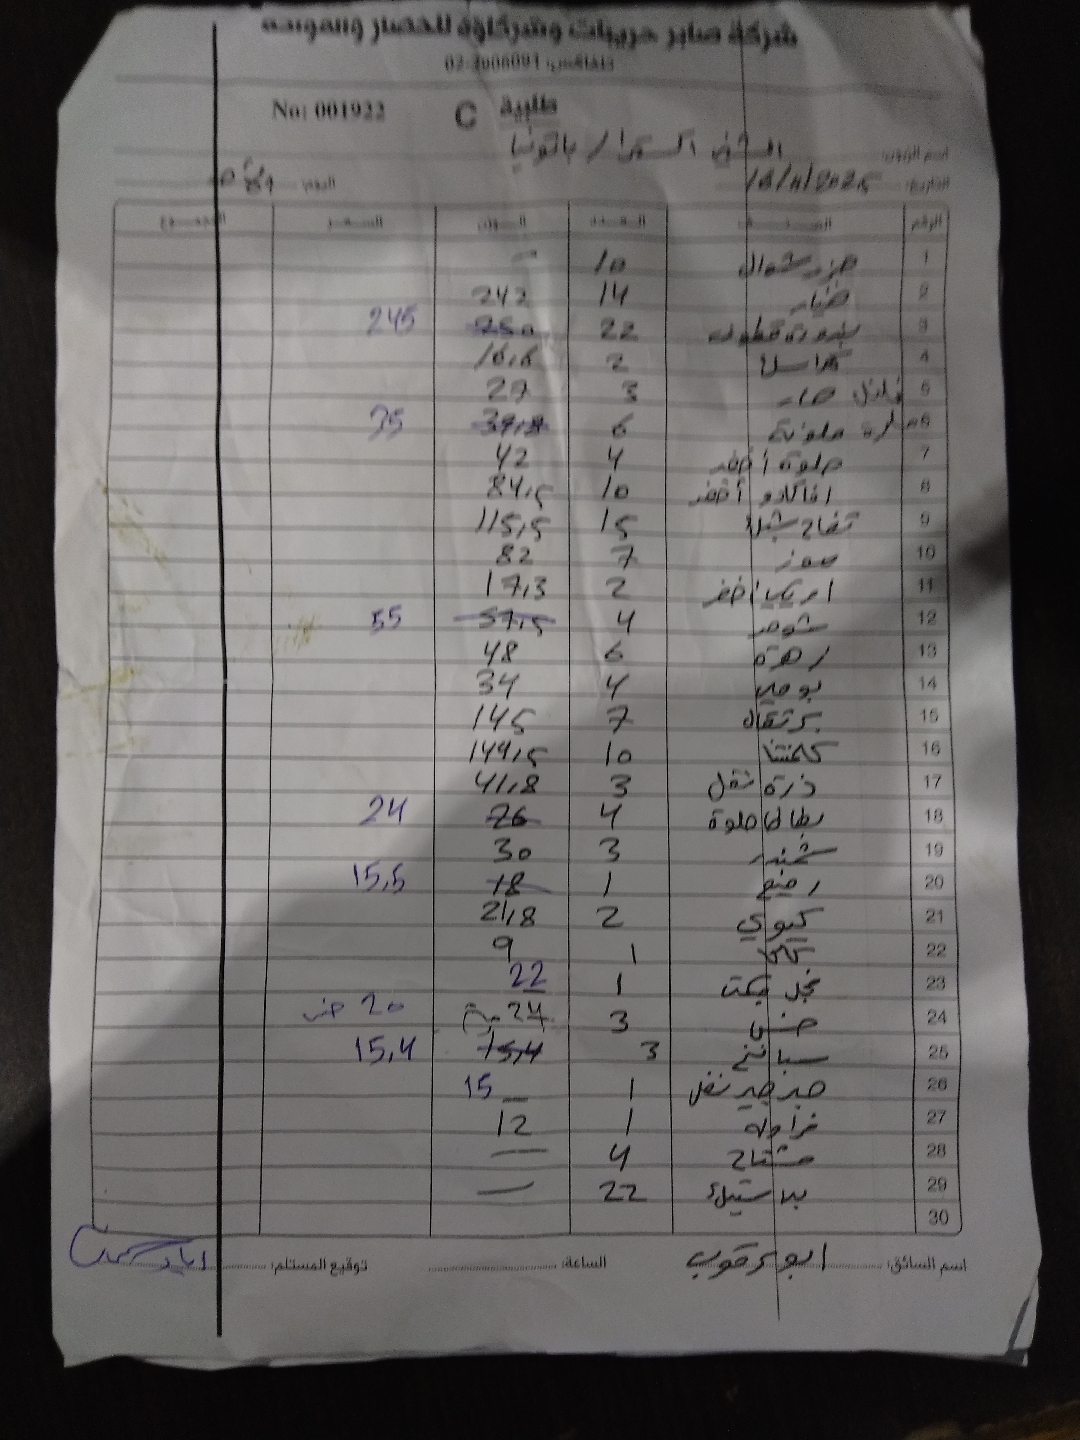 شركة صابر حريبات وشركاؤه للخضار والفواكه
تلفاكس: 02-2
No: 001922 C طلبية
اسم الزبون: / باتونيا
التاريخ: 16/11/2025 اليوم:
الرقم الصنف العدد الوزن السعر المجموع
1 جزر شوال 10 –
2 خيار 14 242
3 بندورة قطوف 22 250 245
4 2 16,6
5 فلفل حار 3 27
6 ملونة 6 37,8 35
7 حلوة أخضر 4 42
8 افاكادو أخضر 10 84,5
9 تفاح 15 115,5
10 موز 7 82
11 اخضر 2 17,3
12 شومر 4 57,5 55
13 زهرة 6 48
14 بوملي 4 34
15 برتقال 7 145
16 كلمنتينا 10 144,5
17 ذرة نقل 3 41,8
18 بطاطا حلوة 4 26 24
19 شمندر 3 30
20 1 18 15,5
21 كيوي 2 21,8
22 1 9
23 فجل بكت 1 22
24 خس 3 24 20 خس
25 سبانخ 3 15,4 15,4
26 جرجير نقل 1 – 15
27 فراولة 1 12
28 مشتاح 4 –
29 بلاستيك 22 –
30
اسم السائق: ابو يعقوب الساعة: توقيع المستلم: